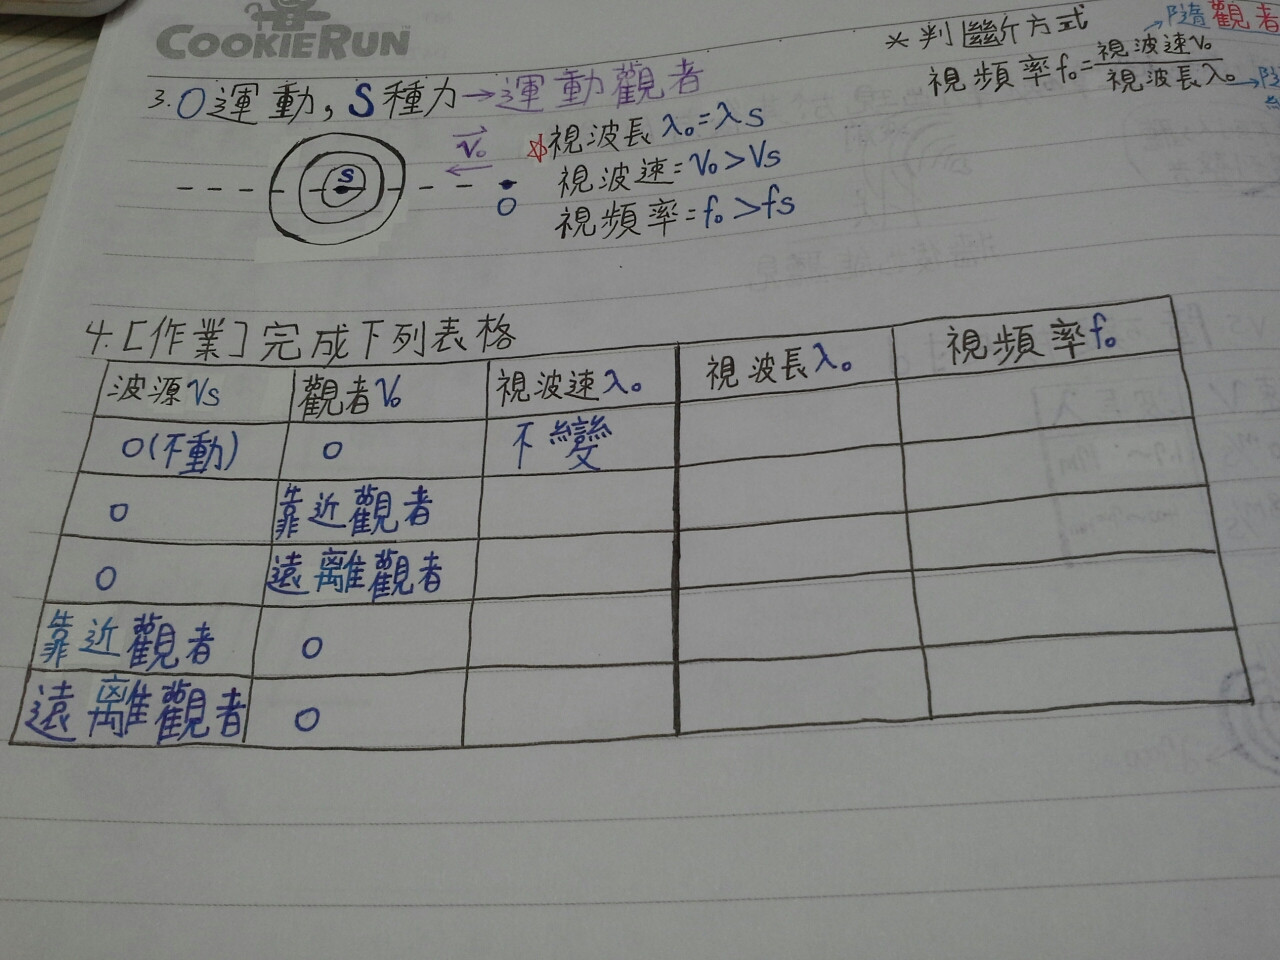 COOKIERUN
*判斷方式
隨觀者
視頻率fo=視波速vo/視波長λo
3.O運動,S種力→運動觀者
vo
☆視波長λo=λs
視波速=vo>vs
視頻率=fo>fs
S
O
4.[作業]完成下列表格
波源vs 觀者vo 視波速λo 視波長λo 視頻率fo
0(不動) 0 不變
0 靠近觀者
0 遠離觀者
靠近觀者 0
遠離觀者 0